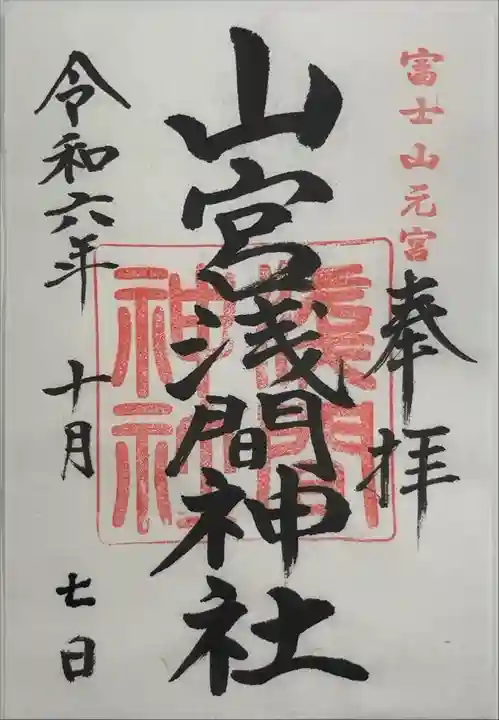 富士山元宮
奉拝
山宮浅間神社
浅間
神社
令和六年
十月
七日